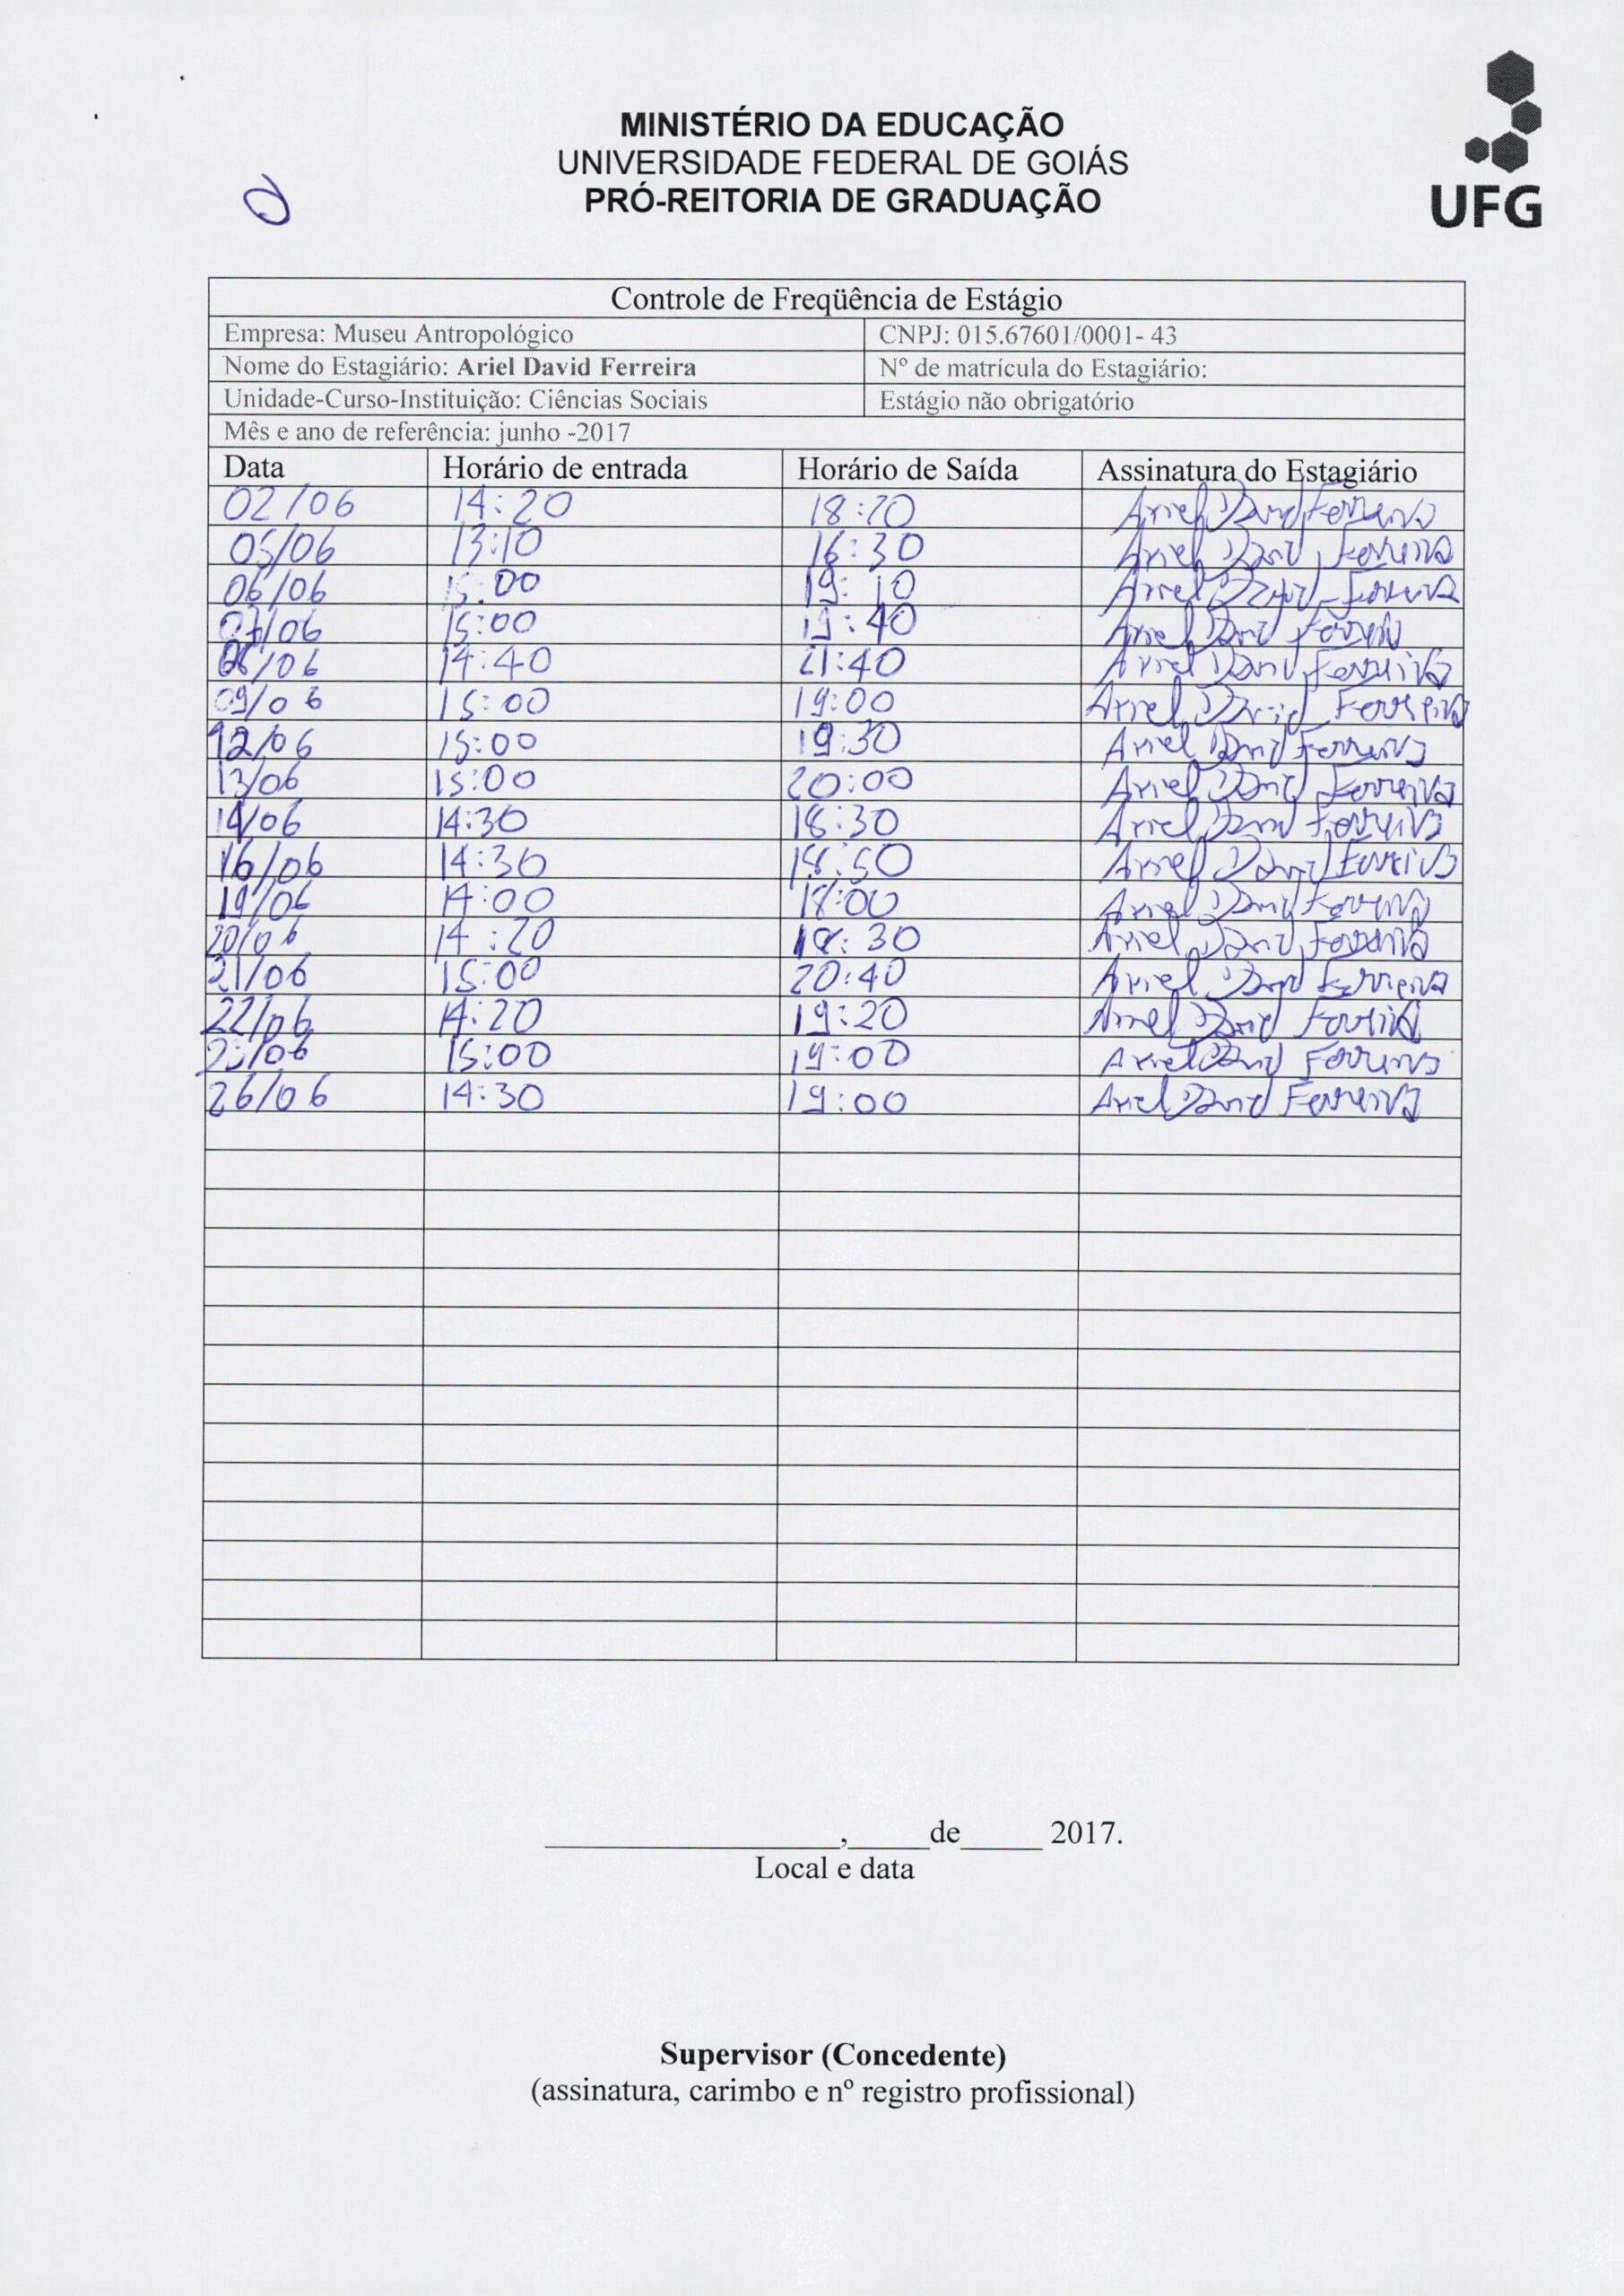 MINISTÉRIO DA EDUCAÇÃO
UNIVERSIDADE FEDERAL DE GOIÁS
PRÓ-REITORIA DE GRADUAÇÃO
UFG
Controle de Freqüência de Estágio
Empresa: Museu Antropológico CNPJ: 015.67601/0001- 43
Nome do Estagiário: Ariel David Ferreira Nº de matrícula do Estagiário:
Unidade-Curso-Instituição: Ciências Sociais Estágio não obrigatório
Mês e ano de referência: junho -2017
Data Horário de entrada Horário de Saída Assinatura do Estagiário
02/06 14:20 18:20 Ariel David Ferreira
05/06 13:10 16:30 Ariel David Ferreira
06/06 15:00 19:10 Ariel David Ferreira
07/06 15:00 19:40 Ariel David Ferreira
08/06 14:40 21:40 Ariel David Ferreira
09/06 15:00 19:00 Ariel David Ferreira
12/06 15:00 19:30 Ariel David Ferreira
13/06 15:00 20:00 Ariel David Ferreira
14/06 14:30 18:30 Ariel David Ferreira
16/06 14:30 18:50 Ariel David Ferreira
19/06 14:00 18:00 Ariel David Ferreira
20/06 14:20 18:30 Ariel David Ferreira
21/06 15:00 20:40 Ariel David Ferreira
22/06 14:20 19:20 Ariel David Ferreira
23/06 15:00 19:00 Ariel David Ferreira
26/06 14:30 19:00 Ariel David Ferreira
__________________,_____de_____ 2017.
Local e data
Supervisor (Concedente)
(assinatura, carimbo e nº registro profissional)